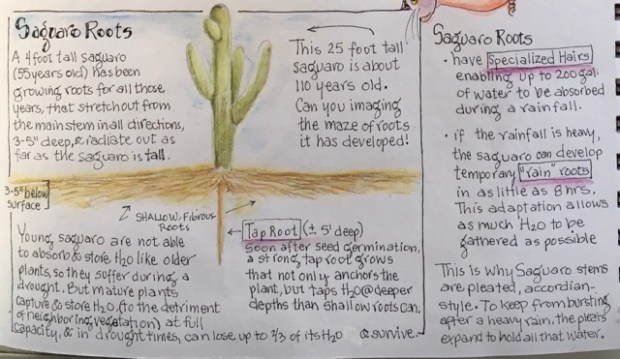 Saguaro Roots
A 4foot tall saguaro
(55 years old) has been
growing roots for all those
years, that stretch out from
the main stem in all directions,
3-5" deep, & radiate out as
far as the saguaro is tall.
This 25 foot tall
saguaro is about
110 years old.
Can you imaging
the maze of roots
it has developed!
3-5" below
surface
SHALLOW, Fibrous
Roots
Tap Root (± 5' deep)
Soon after seed germination,
a strong tap root grows
that not only anchors the
plant, but taps H2O @ deeper
depths than shallow roots can.
Young saguaro are not able
to absorb & store H2O like older
plants, so they suffer during a
drought. But mature plants
capture & store H2O, (to the detriment
of neighboring vegetation) at full
capacity, & in drought times, can lose up to 2/3 of its H2O & survive.
Saguaro Roots
• have Specialized Hairs
enabling up to 200 gal.
of water to be absorbed
during a rainfall.
• if the rainfall is heavy,
the saguaro can develop
temporary "rain" roots
in as little as 8 hrs.
This adaptation allows
as much H2O to be
gathered as possible
This is why Saguaro stems
are pleated, accordian-
style. To keep from bursting
after a heavy rain, the pleats
expand to hold all that water.